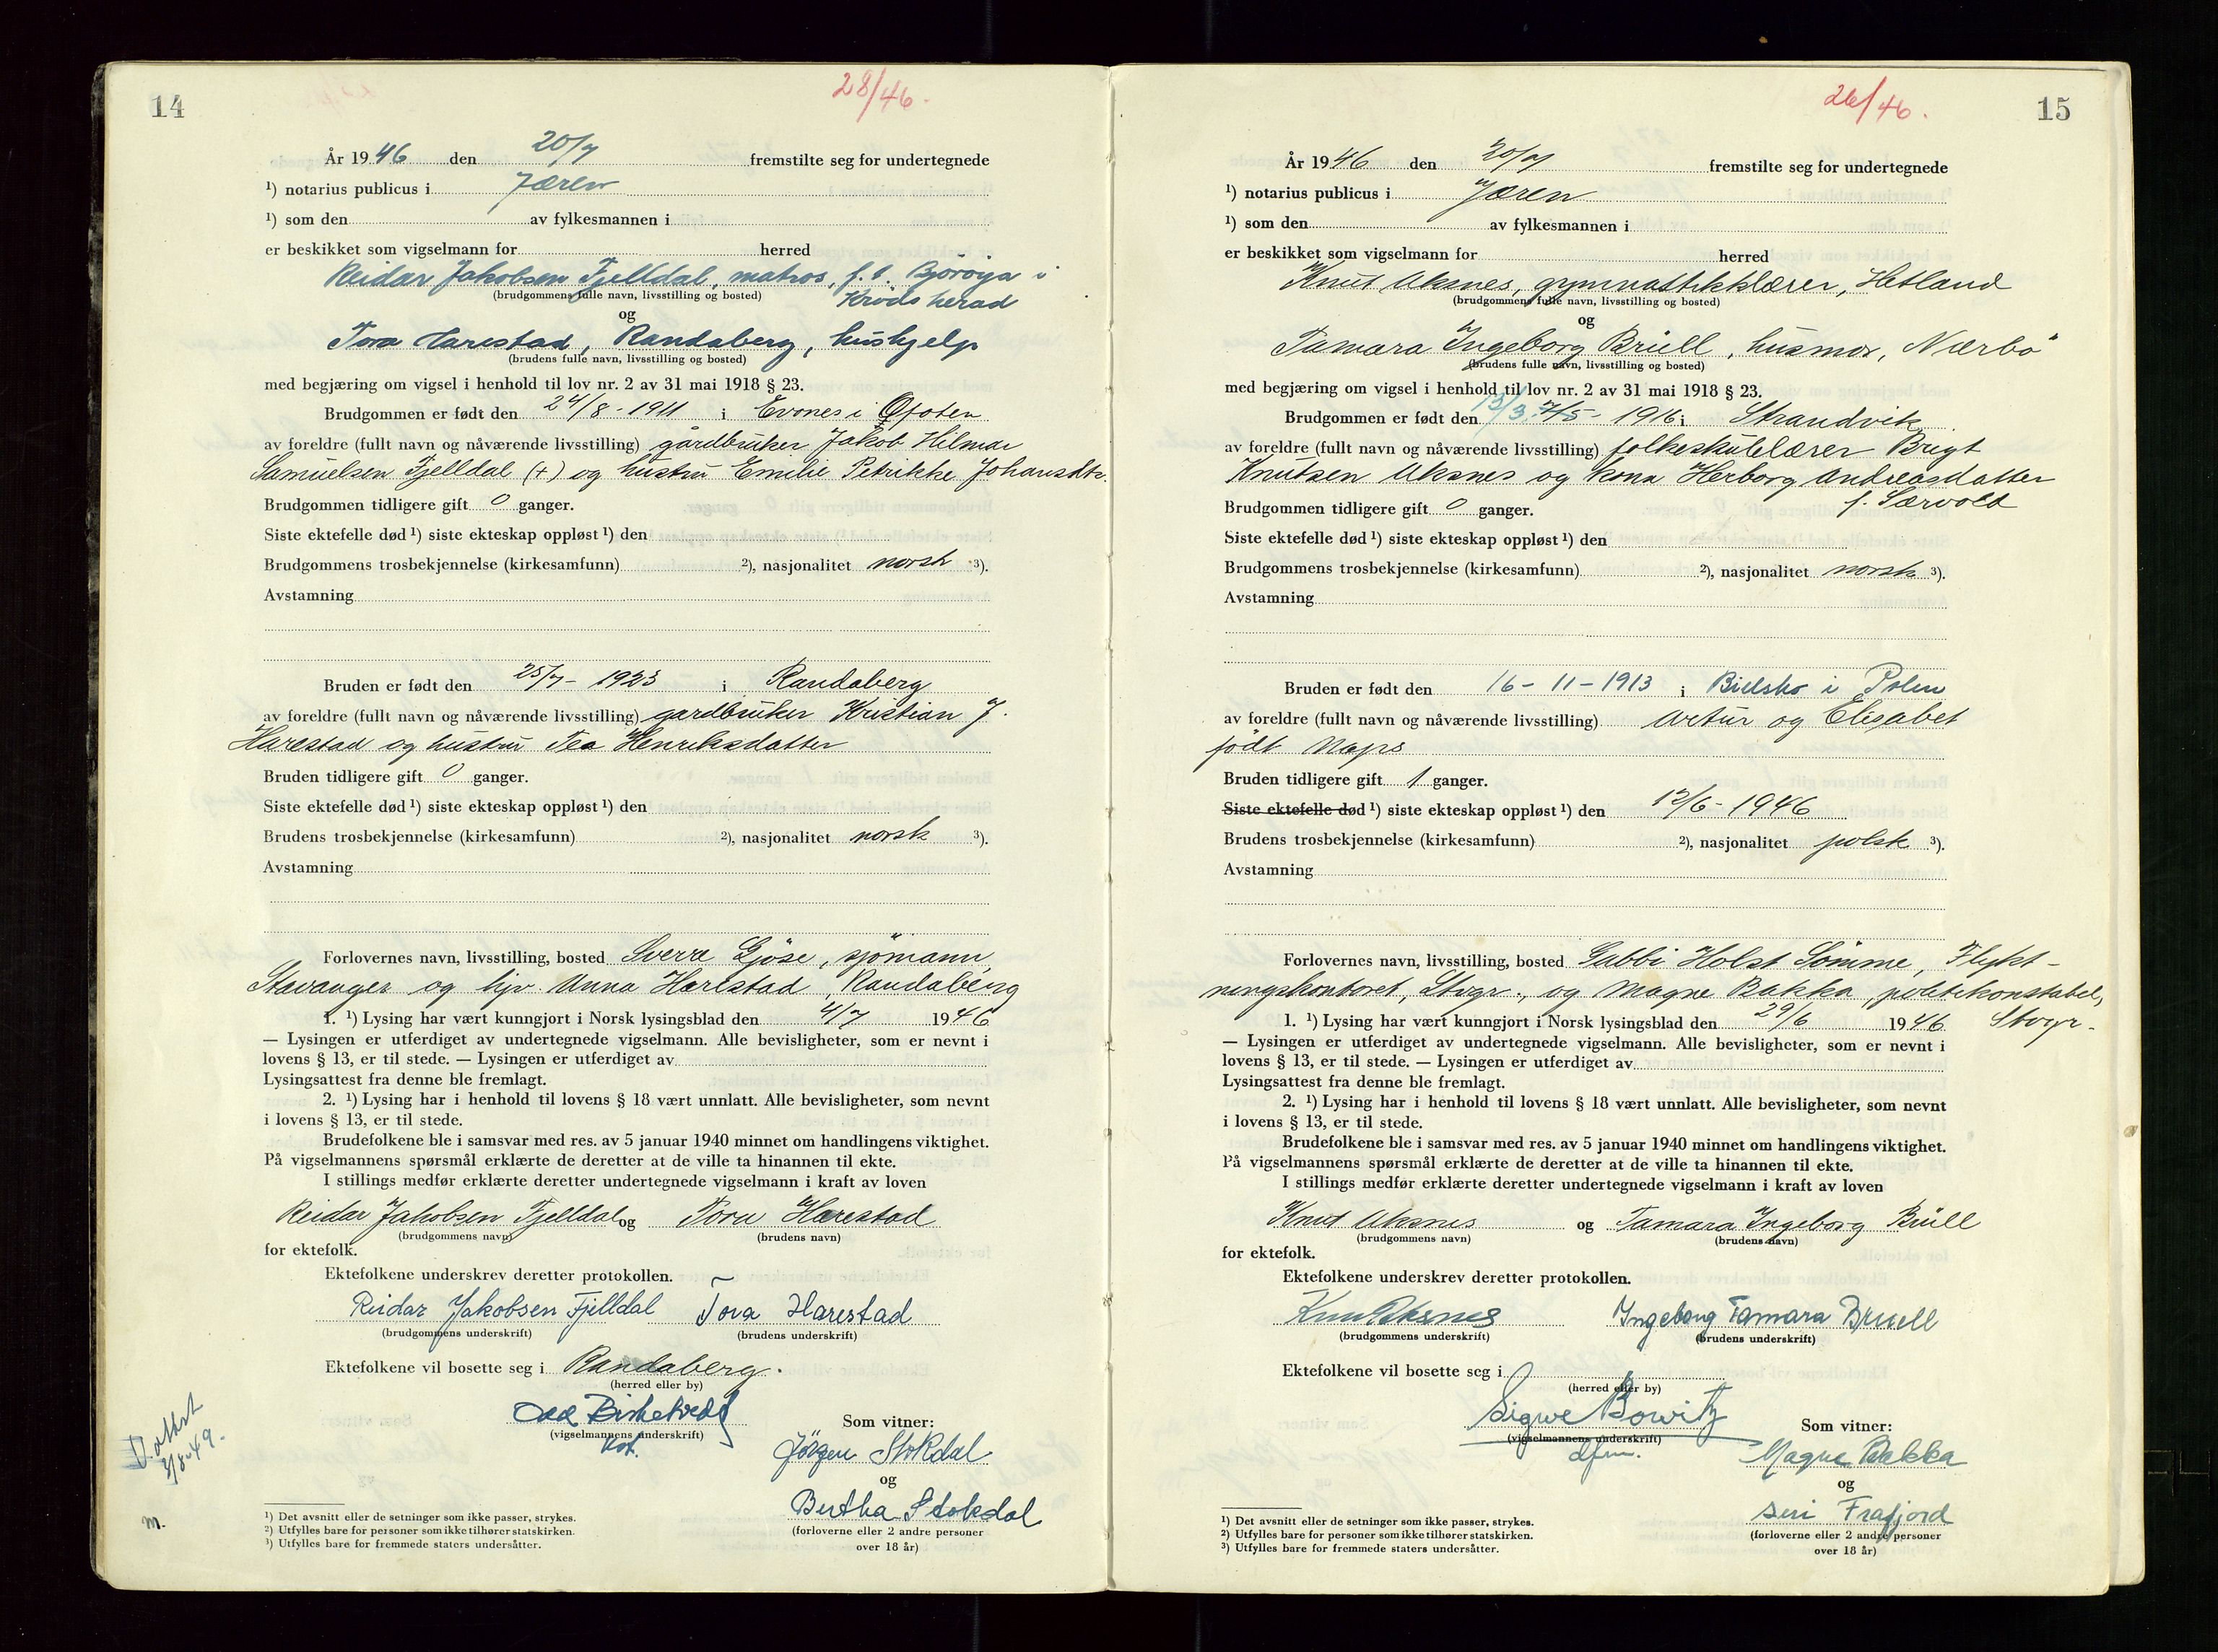 14
28/46.
År 1946 den 20/7 fremstilte seg for undertegnede
¹) notarius publicus i Jæren
¹) som den av fylkesmannen i
er beskikket som vigselmann for herred
Reidar Jakobsen Fjelldal, matros, f. t. Björöya i
(brudgommens fulle navn, livsstilling og bosted) Kröds herad
og
Tora Harestad, Randaberg, hushjelp
(brudens fulle navn, livsstilling og bosted)
med begjæring om vigsel i henhold til lov nr. 2 av 31 mai 1918 § 23.
Brudgommen er født den 24/8-1911 i Evenes i Ofoten
av foreldre (fullt navn og nåværende livsstilling) gårdbruker Jakob Hilmar
Samuelsen Fjelldal (+) og hustru Emilie Petrikke Johansdtr.
Brudgommen tidligere gift 0 ganger.
Siste ektefelle død ¹) siste ekteskap oppløst ¹) den
Brudgommens trosbekjennelse (kirkesamfunn) ²), nasjonalitet norsk ³).
Avstamning
Bruden er født den 25/7- 1923 i Randaberg
av foreldre (fullt navn og nåværende livsstilling) gardbruker Kristian J.
Harestad og hustru Tea Henriksdatter
Bruden tidligere gift 0 ganger.
Siste ektefelle død ¹) siste ekteskap oppløst ¹) den
Brudens trosbekjennelse (kirkesamfunn) ²), nasjonalitet norsk ³).
Avstamning
Forlovernes navn, livsstilling, bosted Sverre Gjöse, sjömann,
Stavanger og hjv. Anna Harestad, Randaberg
1. ¹) Lysing har vært kunngjort i Norsk lysingsblad den 4/7 1946
— Lysingen er utferdiget av undertegnede vigselmann. Alle bevisligheter, som er nevnt i
lovens § 13, er til stede. — Lysingen er utferdiget av
Lysingsattest fra denne ble fremlagt.
2. ¹) Lysing har i henhold til lovens § 18 vært unnlatt. Alle bevisligheter, som nevnt
i lovens § 13, er til stede.
Brudefolkene ble i samsvar med res. av 5 januar 1940 minnet om handlingens viktighet.
På vigselmannens spørsmål erklærte de deretter at de ville ta hinannen til ekte.
I stillings medfør erklærte deretter undertegnede vigselmann i kraft av loven
Reidar Jakobsen Fjelldal og Tora Harestad
(brudgommens navn) (brudens navn)
for ektefolk.
Ektefolkene underskrev deretter protokollen.
Reidar Jakobsen Fjelldal Tora Harestad
(brudgommens underskrift) (brudens underskrift)
Ektefolkene vil bosette seg i Randaberg.
(herred eller by)
Odd Birketvedt
(vigselmannens underskrift)
Som vitner:
Jörgen Stokdal
og
Bertha Stokdal
(forloverne eller 2 andre personer
over 18 år)
D. attest
3/8-49.
m.
¹) Det avsnitt eller de setninger som ikke passer, strykes.
²) Utfylles bare for personer som ikke tilhører statskirken.
³) Utfylles bare for fremmede staters undersåtter.
26/46.
15
År 1946 den 20/7 fremstilte seg for undertegnede
¹) notarius publicus i Jæren
¹) som den av fylkesmannen i
er beskikket som vigselmann for herred
Knut Aksnes, gymnastikklærer, Hetland
(brudgommens fulle navn, livsstilling og bosted)
og
Tamara Ingeborg Brüll, husmor, Nærbö
(brudens fulle navn, livsstilling og bosted)
med begjæring om vigsel i henhold til lov nr. 2 av 31 mai 1918 § 23.
Brudgommen er født den 13/3. 7/5- 1916 i Strandvik
av foreldre (fullt navn og nåværende livsstilling) folkeskulelærer Brigt
Knutsen Aksnes og kona Herborg Andreasdatter
f. Særvold
Brudgommen tidligere gift 0 ganger.
Siste ektefelle død ¹) siste ekteskap oppløst ¹) den
Brudgommens trosbekjennelse (kirkesamfunn) ²), nasjonalitet norsk ³).
Avstamning
Bruden er født den 16-11-1913 i Bielsko i Polen
av foreldre (fullt navn og nåværende livsstilling) Artur og Elisabet
födt Maps
Bruden tidligere gift 1 ganger.
Siste ektefelle død ¹) siste ekteskap oppløst ¹) den 12/6-1946
Brudens trosbekjennelse (kirkesamfunn) ²), nasjonalitet polsk ³).
Avstamning
Forlovernes navn, livsstilling, bosted Gabbi Holst Sömme, Flykt-
ningskontoret, Stvgr., og Magne Bakka, politikonstabel,
1. ¹) Lysing har vært kunngjort i Norsk lysingsblad den 29/6 1946 Stvgr.
— Lysingen er utferdiget av undertegnede vigselmann. Alle bevisligheter, som er nevnt i
lovens § 13, er til stede. — Lysingen er utferdiget av
Lysingsattest fra denne ble fremlagt.
2. ¹) Lysing har i henhold til lovens § 18 vært unnlatt. Alle bevisligheter, som nevnt
i lovens § 13, er til stede.
Brudefolkene ble i samsvar med res. av 5 januar 1940 minnet om handlingens viktighet.
På vigselmannens spørsmål erklærte de deretter at de ville ta hinannen til ekte.
I stillings medfør erklærte deretter undertegnede vigselmann i kraft av loven
Knut Aksnes og Tamara Ingeborg Brüll
(brudgommens navn) (brudens navn)
for ektefolk.
Ektefolkene underskrev deretter protokollen.
Knut Aksnes Ingeborg Tamara Bruell
(brudgommens underskrift) (brudens underskrift)
Ektefolkene vil bosette seg i
(herred eller by)
Sigwe Bowitz
(vigselmannens underskrift)
dfm.
Som vitner:
Magne Bakka
og
Siri Frafjord
(forloverne eller 2 andre personer
over 18 år)
¹) Det avsnitt eller de setninger som ikke passer, strykes.
²) Utfylles bare for personer som ikke tilhører statskirken.
³) Utfylles bare for fremmede staters undersåtter.